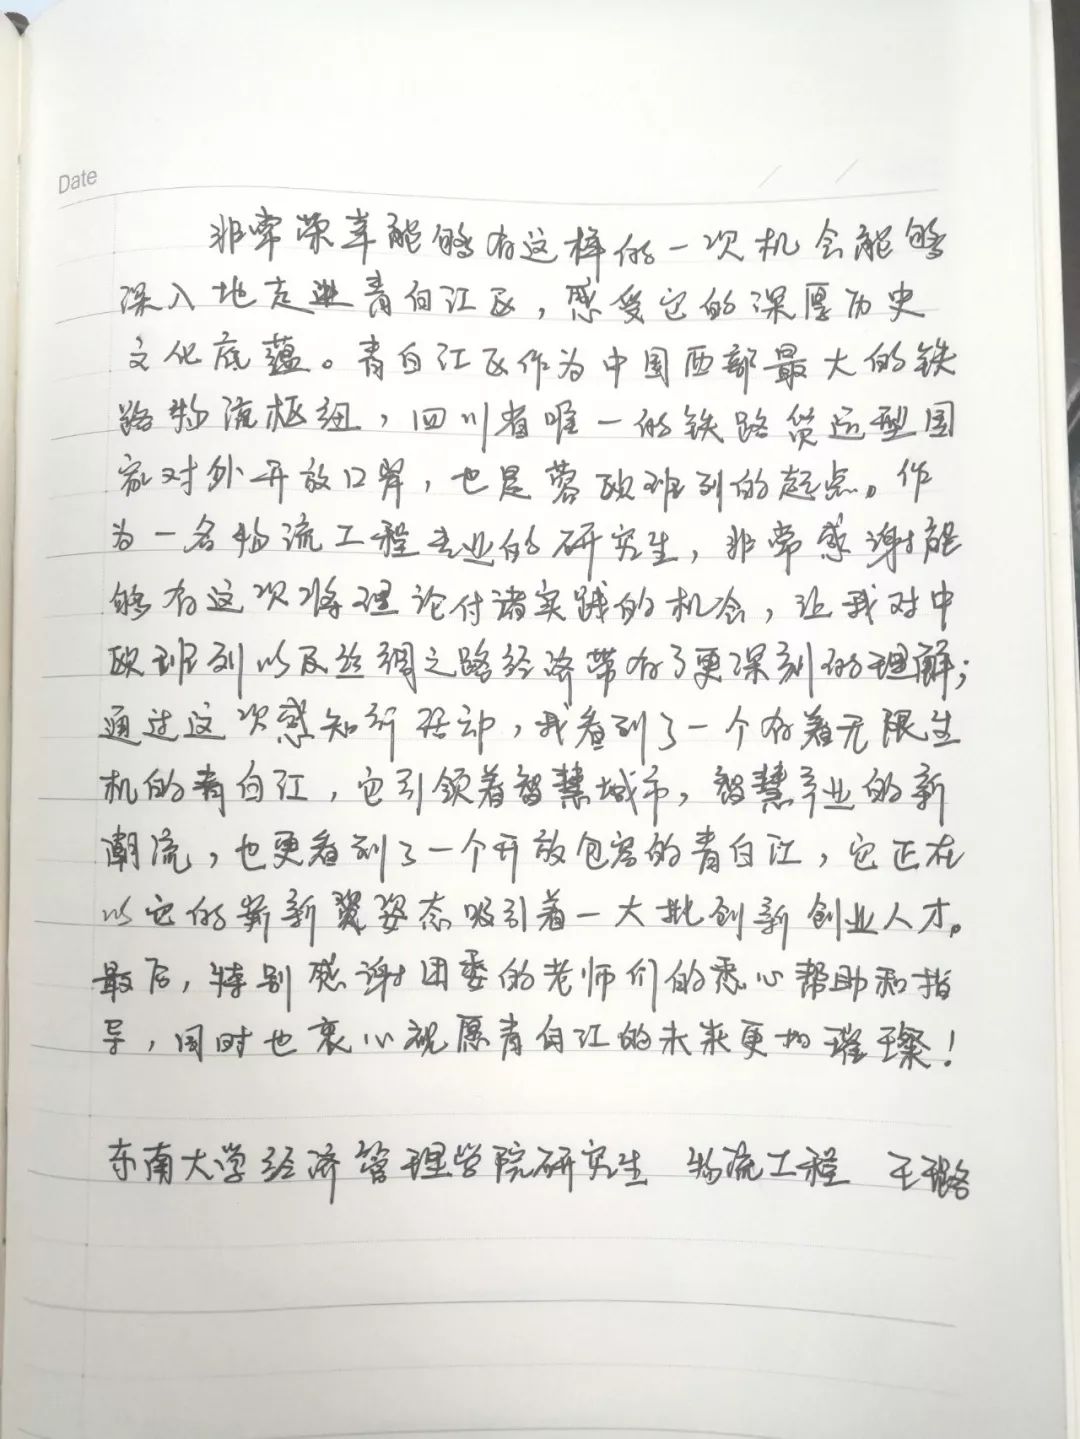 Date
非常荣幸能够有这样的一次机会能够
深入地走进青白江区，感受它的深厚历史
文化底蕴。青白江区作为中国西部最大的铁
路物流枢纽，四川省唯一的铁路货运型国
家对外开放口岸，也是蓉欧班列的起点。作
为一名物流工程专业的研究生，非常感谢能
够有这次将理论付诸实践的机会，让我对中
欧班列以及丝绸之路经济带有了更深刻的理解；
通过这次感知行活动，我看到了一个有着无限生
机的青白江，它引领着智慧城市，智慧产业的新
潮流，也更看到了一个开放包容的青白江，它正在
以它的崭新姿态吸引着一大批创新创业人才。
最后，特别感谢团委的老师们的悉心帮助和指
导，同时也衷心祝愿青白江的未来更加璀璨！
东南大学经济管理学院研究生 物流工程 王璐